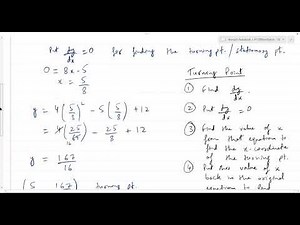 Put dy/dx = 0 for finding the turning pt. / stationary pt.
0 = 8x - 5
x = 5/8
y = 4(5/8)² - 5(5/8) + 12
= 4(25/64) - 25/8 + 12
y = 167/16
(5 167) turning pt.
Turning Point
① Find dy/dx.
② Put dy/dx = 0
③ Find the value of x
from that equation to
find the x-coordinate
of the turning pt.
④ Put this value of x
back in the original
equation to find